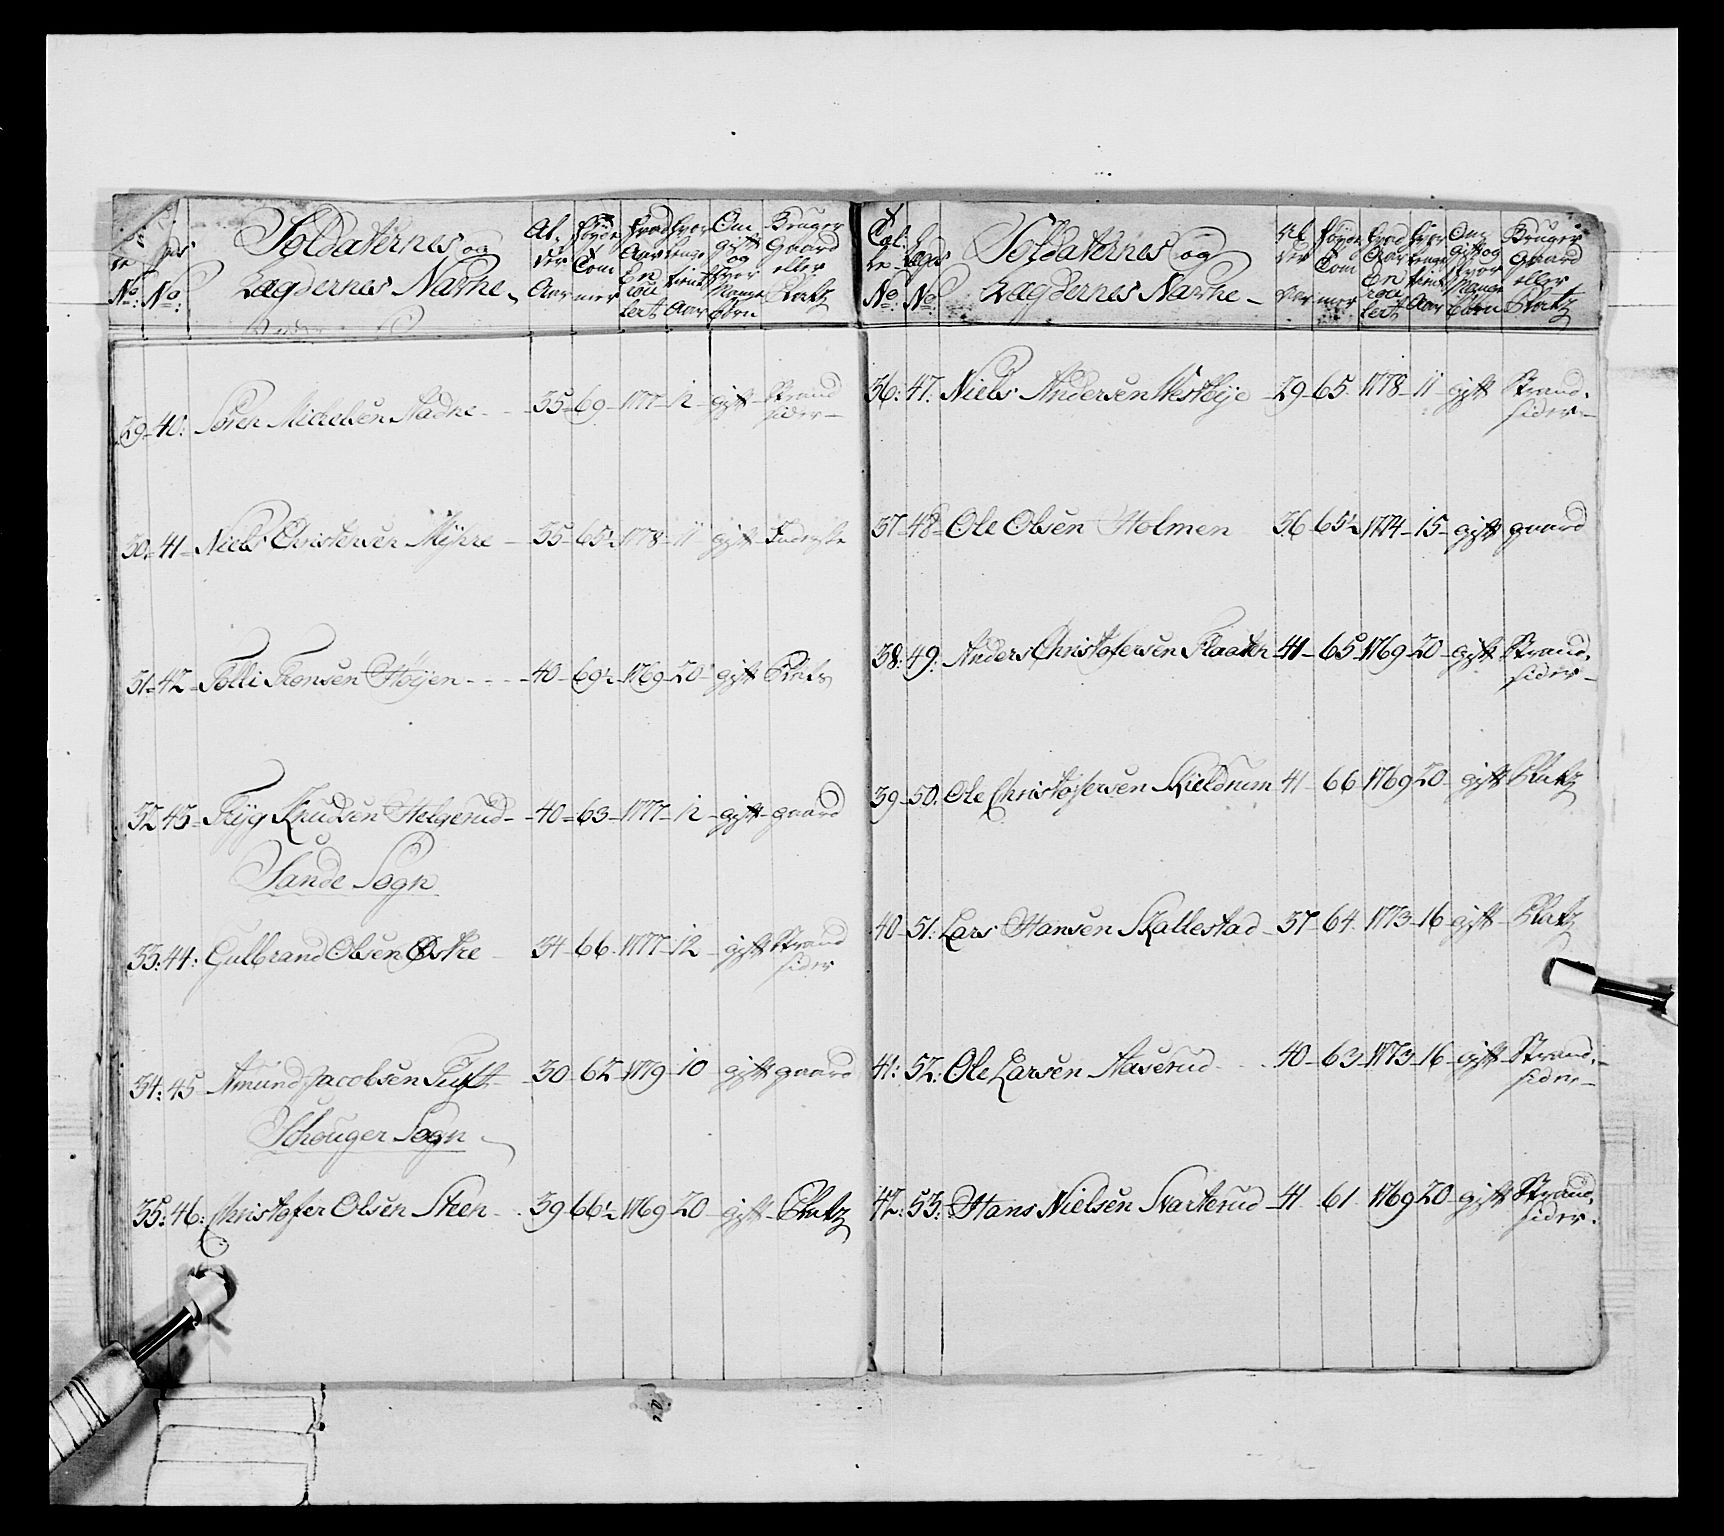 No: No: Soldaternes og Lægdernes Nafne Al- der Aar Høyde Tom- mer hvad Aar En rou- lert hvor lenge tient Aar Om gift og hvor Mange Børn Bruger Gaard eller Platz
29 - 40: Sören Michelsen - 35 - 69 - 1777 - 12 - gift - Strand
sider -
30 - 41 - Niels Christensen Myhre - 35 - 65½ 1778 - 11 gift -
31 - 42 - Tolli Tronsen Höyen - - - - 40 - 69½ 1769 - 20 - gift Plads
32 43 - Tryg Knudsen Helgerud - 40 - 63 - 1777 - 12 - gift - gaard
Sande Sogn
33: 44: Gulbrand Olsen Østre - 34 - 66 - 1777 - 12 - gift Strand
sider
34: 45 - Amund Jacobsen Tuft - 30 - 62 - 1779 - 10 gift gaard
Schouger Sogn
35: 46: Christofer Olsen Steen - 39 - 66½ 1769 - 20 gift - Platz
Egl. te No: Lægds No: Soldaternes og Lægdernes Nafne - Al der Aar Høyde Tom mer hvad Aar En rou lert hvor lenge tient Aar Om gift og hvor Mange Børn Bruger Gaard eller Platz
36: 47: Niels Andersen Westbye - 29 - 65 - 1778 - 11 - gift Strand-
sider -
37 - 48 - Ole Olsen Holmen 36 - 65½ 1774 - 15 - gift gaard
38: 49: Anders Christofersen Flaaten 41 - 65 - 1769 - 20 - gift Strand-
sider -
39 - 50: Ole Christofersen Skieldrum 41 - 66 - 1769 20 - gift Platz
40 - 51: Lars Hansen Skallestad - 37 - 64 - 1773 - 16 - gift - Platz
41: 52: Ole Larsen Aaserud - - - 40 - 63 - 1773 - 16 - gift - Strand-
sider -
42: 53: Hans Nielsen Svarterud - 41 - 61 - 1769 20 - gift - Strand-
sider -